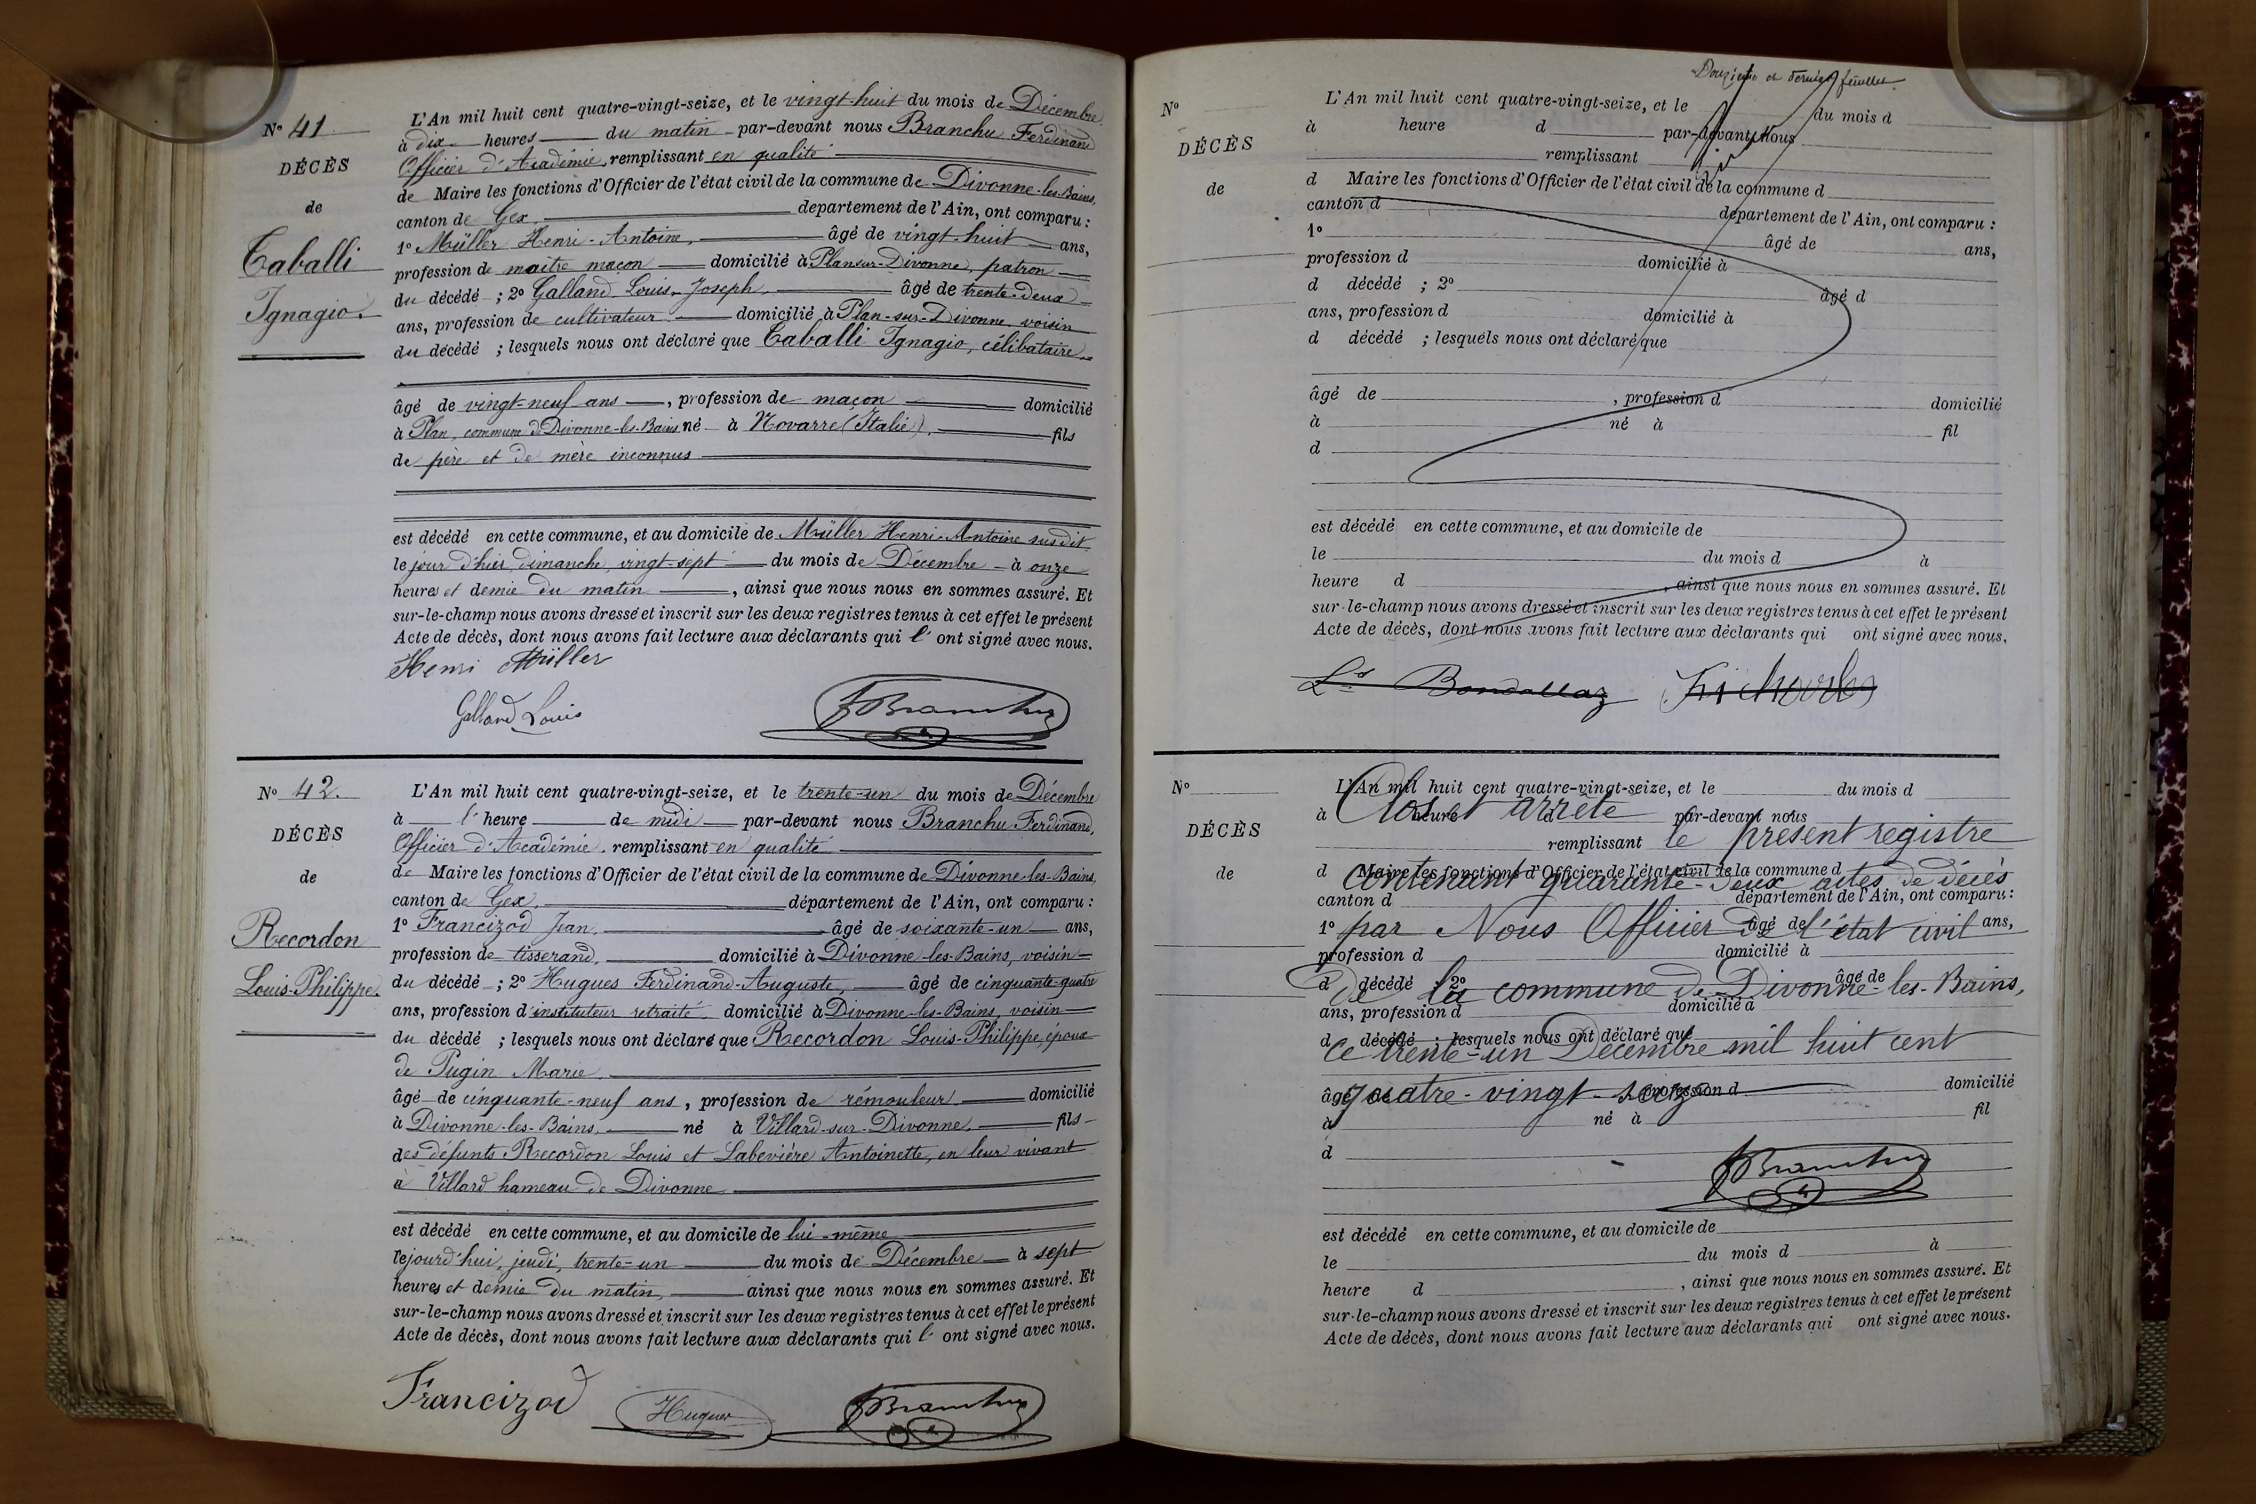 N° 41
DÉCÈS
de
Caballi
Ignagio.
L'An mil huit cent quatre-vingt-seize, et le vingt-huit du mois de Décembre
à dix heures du matin par-devant nous Branchu Ferdinand
Officier d'Académie, remplissant en qualité
de Maire les fonctions d'Officier de l'état civil de la commune de Divonne-les-Bains,
canton de Gex département de l'Ain, ont comparu :
1° Müller Henri-Antoine, âgé de vingt-huit ans,
profession de maître maçon domicilié à Plan-sur-Divonne, patron
du décédé ; 2° Galland Louis-Joseph, âgé de trente-deux
ans, profession de cultivateur domicilié à Plan-sur-Divonne voisin
du décédé ; lesquels nous ont déclaré que Caballi Ignagio, célibataire
âgé de vingt-neuf ans, profession de maçon domicilié
à Plan, commune de Divonne-les-Bains né à Novarre (Italie), fils
de père et de mère inconnus
est décédé en cette commune, et au domicile de Müller Henri-Antoine susdit
le jour d'hier dimanche, vingt-sept du mois de Décembre à onze
heures et demie du matin, ainsi que nous nous en sommes assuré. Et
sur-le-champ nous avons dressé et inscrit sur les deux registres tenus à cet effet le présent
Acte de décès, dont nous avons fait lecture aux déclarants qui l' ont signé avec nous.
Henri Müller
Galland Louis
FBranchu
N° 42.
DÉCÈS
de
Recordon
Louis-Philippe.
L'An mil huit cent quatre-vingt-seize, et le trente-un du mois de Décembre
à l'heure de midi par-devant nous Branchu Ferdinand,
Officier d'Académie, remplissant en qualité
de Maire les fonctions d'Officier de l'état civil de la commune de Divonne-les-Bains,
canton de Gex département de l'Ain, ont comparu :
1° Francizod Jean, âgé de soixante-un ans,
profession de tisserand, domicilié à Divonne-les-Bains, voisin
du décédé ; 2° Hugues Ferdinand-Auguste, âgé de cinquante-quatre
ans, profession d'instituteur retraité domicilié à Divonne-les-Bains, voisin
du décédé ; lesquels nous ont déclaré que Recordon Louis-Philippe, époux
de Pugin Marie
âgé de cinquante-neuf ans, profession de rémouleur domicilié
à Divonne-les-Bains, né à Villard-sur-Divonne, fils
des défunts Recordon Louis et Labevière Antoinette, en leur vivant
à Villard hameau de Divonne
est décédé en cette commune, et au domicile de lui-même
cejourd'hui, jeudi, trente-un du mois de Décembre à sept
heures et demie du matin, ainsi que nous nous en sommes assuré. Et
sur-le-champ nous avons dressé et inscrit sur les deux registres tenus à cet effet le présent
Acte de décès, dont nous avons fait lecture aux déclarants qui l' ont signé avec nous.
Francizod
Hugues
FBranchu
Douzième et dernier feuillet
N°
DÉCÈS
de
L'An mil huit cent quatre-vingt-seize, et le du mois d
à heure d par-devant Nous
remplissant
d Maire les fonctions d'Officier de l'état civil de la commune d
canton d département de l'Ain, ont comparu :
1° âgé de ans,
profession d domicilié à
d décédé ; 2° âgé d
ans, profession d domicilié à
d décédé ; lesquels nous ont déclaré que
âgé de , profession d domicilié
à né à fil
d
est décédé en cette commune, et au domicile de
le du mois d à
heure d , ainsi que nous nous en sommes assuré. Et
sur-le-champ nous avons dressé et inscrit sur les deux registres tenus à cet effet le présent
Acte de décès, dont nous avons fait lecture aux déclarants qui ont signé avec nous.
Ls Bondallaz
N°
DÉCÈS
de
L'An mil huit cent quatre-vingt-seize, et le du mois d
à heure d par-devant nous
Clos et arrêté
remplissant le présent registre
d Maire les fonctions d'Officier de l'état civil de la commune d
contenant quarante-deux actes de décès
canton d département de l'Ain, ont comparu :
1° âgé de ans,
par Nous Officier de l'état civil
profession d domicilié à
d décédé ; 2° âgé de
de la commune de Divonne-les-Bains,
ans, profession d domicilié à
d décédé ; lesquels nous ont déclaré que
ce trente-un Décembre mil huit cent
âgé de profession d domicilié
quatre-vingt-seize
à né à fil
d
FBranchu
est décédé en cette commune, et au domicile de
le du mois d à
heure d , ainsi que nous nous en sommes assuré. Et
sur-le-champ nous avons dressé et inscrit sur les deux registres tenus à cet effet le présent
Acte de décès, dont nous avons fait lecture aux déclarants qui ont signé avec nous.